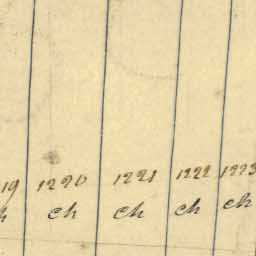 19 1220 1221 1222 1223
h ch ch ch ch